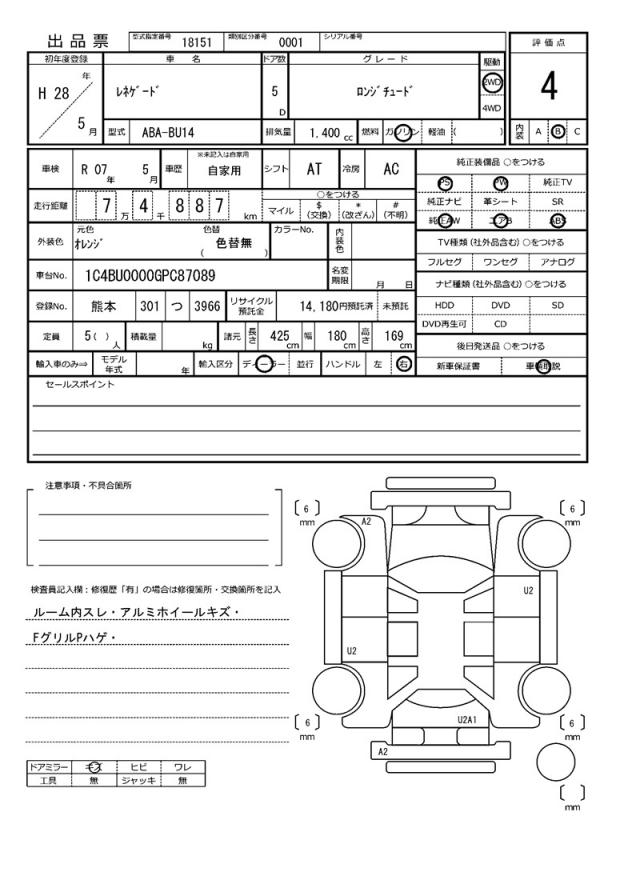 出品票
型式指定番号 18151 類別区分番号 0001 シリアル番号
評価点
4
内装 A B C
初年度登録 車名 ドア数 グレード 駆動
H 28 年 5 月
ﾚﾈｹﾞｰﾄﾞ 5 D ﾛﾝｼﾞﾁｭｰﾄﾞ 2WD
4WD
型式 ABA-BU14 排気量 1.400 cc 燃料 ガソリン 軽油 ( )
車検 R 07 年 5 月 車歴 ※未記入は自家用 自家用 シフト AT 冷房 AC
走行距離 7 万 4 千 8 8 7 km
○をつける
マイル $ (交換) * (改ざん) # (不明)
外装色 元色 ｵﾚﾝｼﾞ 色替 色替無 ( ) カラーNo. 内装色
車台No. 1C4BU0000GPC87089 名変期限 月 日
登録No. 熊本 301 つ 3966 リサイクル預託金 14,180円預託済 未預託
定員 5 ( ) 人 積載量 kg 諸元 長さ 425 cm 幅 180 cm 高さ 169 cm
輸入車のみ⇒ モデル年式 年 輸入区分 ディーラー 並行 ハンドル 左 右
純正装備品 ○をつける
PS PW 純正TV
純正ナビ 革シート SR
純正AW エアB ABS
TV種類 (社外品含む) ○をつける
フルセグ ワンセグ アナログ
ナビ種類 (社外品含む) ○をつける
HDD DVD SD
DVD再生可 CD
後日発送品 ○をつける
新車保証書 車輌取説
セールスポイント
注意事項・不具合箇所
検査員記入欄：修復歴「有」の場合は修復箇所・交換箇所を記入
ルーム内スレ・アルミホイールキズ・
FグリルPハゲ・
ドアミラー キズ ヒビ ワレ
工具 無 ジャッキ 無
6 mm
6 mm
A2
U2
U2
U2A1
6 mm
6 mm
A2
mm